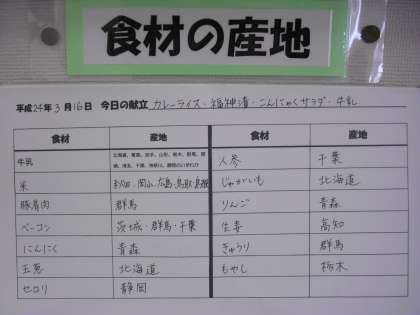 食材の産地
平成24年3月16日 今日の献立 カレーライス・福神漬・こんにゃくサラダ・牛乳
食材 産地 食材 産地
牛乳 人参 千葉
米 秋田・岡山・広島・鳥取・島根 じゃがいも 北海道
豚肩肉 群馬 りんご 青森
ベーコン 茨城・群馬・千葉 生姜 高知
にんにく 青森 きゅうり 群馬
玉葱 北海道 もやし 栃木
セロリ 静岡